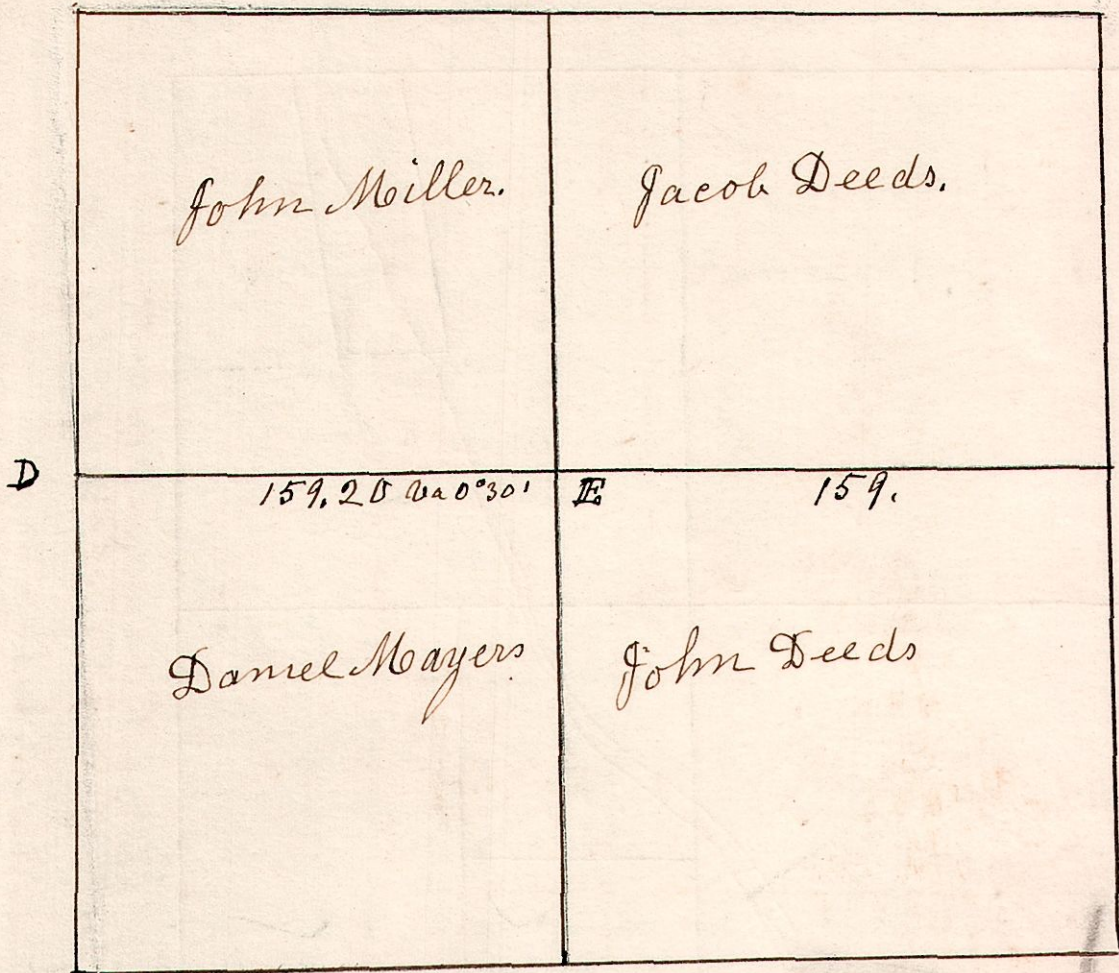 John Miller.
Jacob Deeds.
D
159.20 Va 0°30'
E
159.
Daniel Mayers
John Deeds